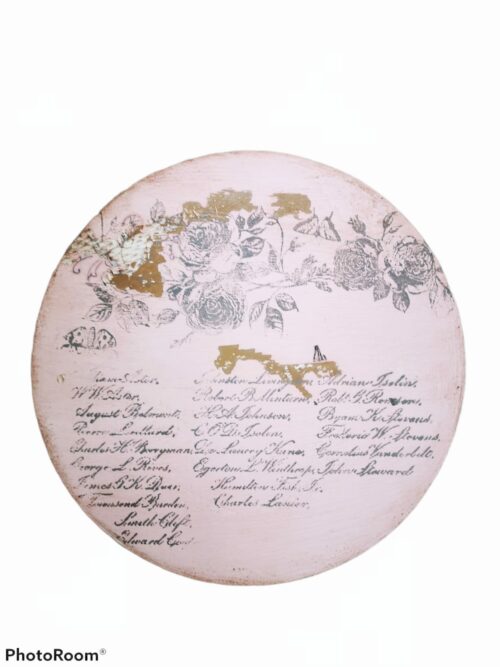 W.W. Astor,
August Belmont,
Pierre Lorillard,
Charles H. Berryman
George L. Rives,
James G.K. Duer,
Townsend Burden,
Smith Clift,
Edward
Johnston Livingston
Robert B. Minturn,
H.A. Johnson,
C.O'D. Iselin,
Geo. Lowery Kane,
Egerton L. Winthrop,
Hamilton Fish, Jr.
Charles Lanier.
Adrian Iselin,
Robt. G. Remsen,
Byam K. Stevens,
Frederic W. Stevens,
Cornelius Vanderbilt,
John Steward
PhotoRoom®